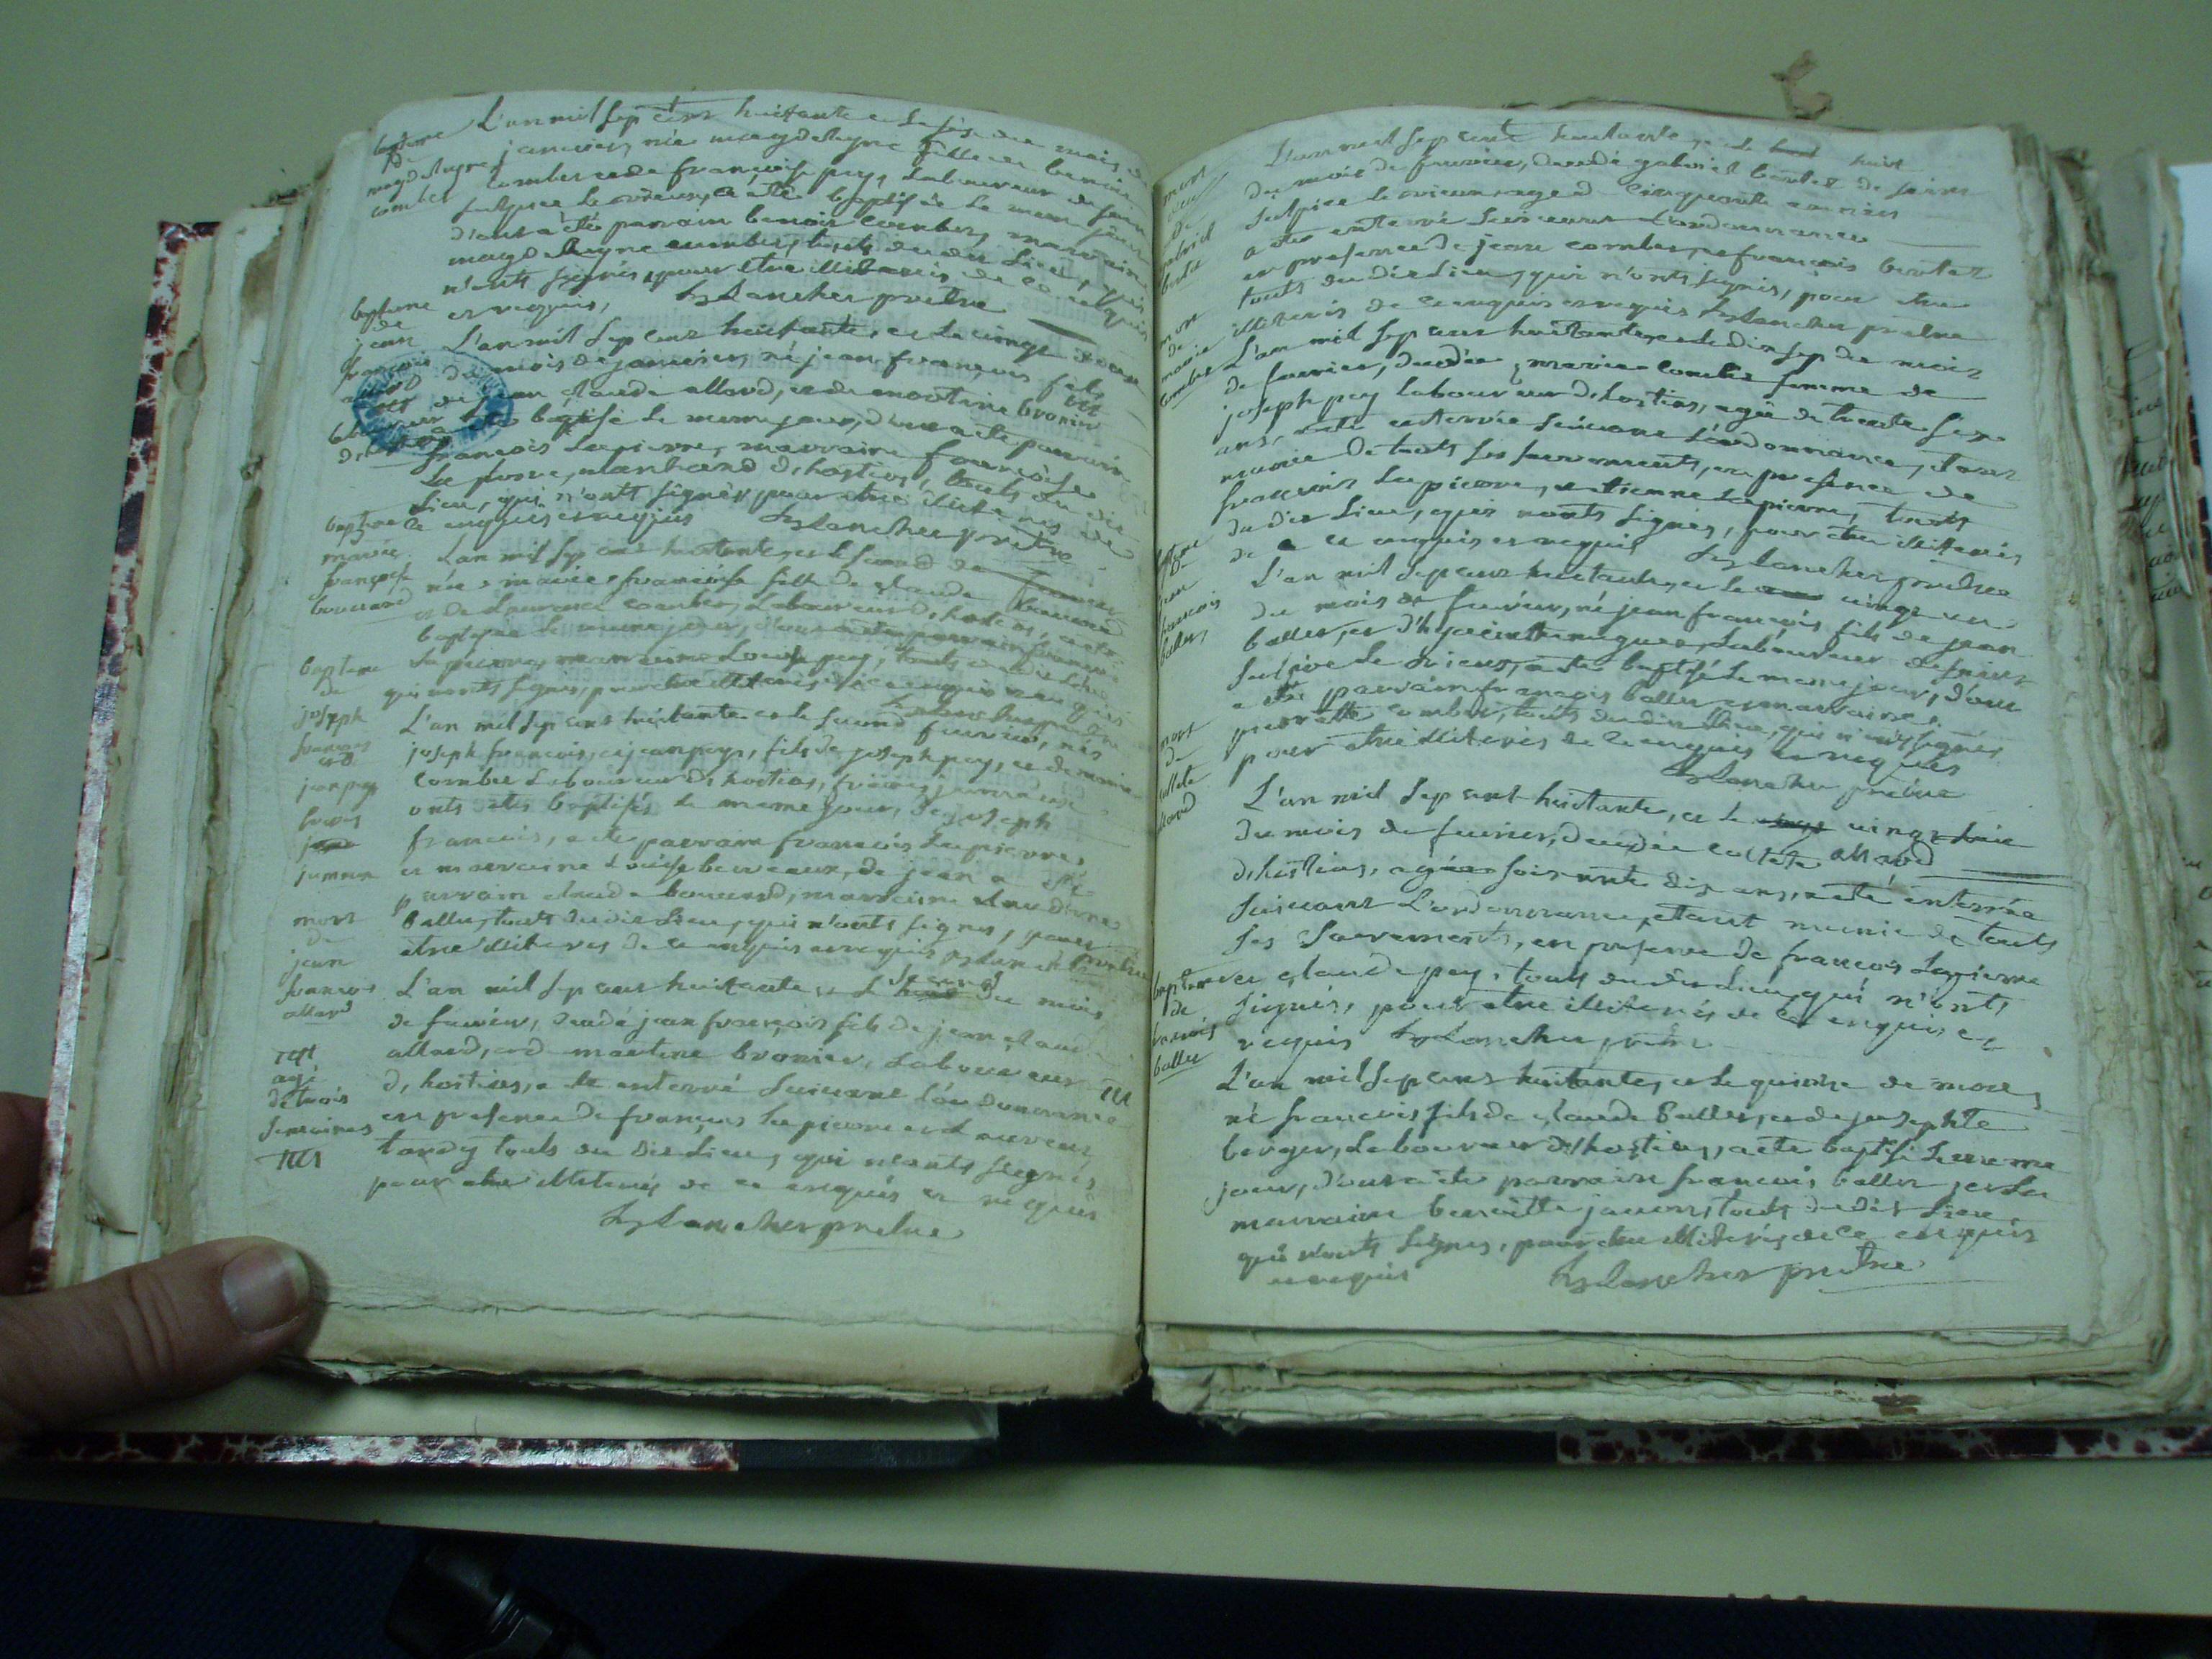 bapteme
de
magdeleyne
combet
L'an mil sep cens huittante et le six du mois de
janvier, née magdeleyne fille de benoit
combet et de françoise pey, laboureur de saint
sulpice le vieux, a été baptisée le meme jour
d'ont a été parrain benoit combet, marraine
magdeleyne combet, touts du dit lieu, qui
n'onts signés, pour etre illiterés de ce enquis
et requis, Lancher pretre
bapteme
de
jean
françois
allard
L'an mil sep cens huittante, et le vingt
du mois de janvier, né jean françois fils
de jean claude allard, et de martine bronier
a été baptisé le meme jour, d'ont a été parrain
françois lapierre, marraine françoise
marchand d'hostias, touts du dit
lieu, qui n'onts signés, pour etre illiterés de
ce enquis et requis Lancher pretre
bapteme
marie
françoise
bouvard
L'an mil sep cens huittante, et le second de fevrier
née marie françoise fille de claude bouvard
et de laurence combet, laboureur d'hostias, a été
baptisée le meme jour, d'ont a été parrain françois
lapierre, marraine louise pey, touts du dit lieu
qui n'onts signés, pour etre illiterés de ce enquis et requis
Lancher pretre
bapteme
de
joseph
françois
et
jean pey
freres
jumeaux
L'an mil sep cens huittante et le second fevrier, nés
joseph françois, et jean pey, fils de joseph pey, et de marie
combet laboureur d'hostias, freres jumeaux
onts étés baptisés le meme jour, de joseph
françois, a été parrain françois lapierre
et marraine louise, de jean a été
parrain claude bouvard, marraine claudine
ballet, touts du dit lieu, qui n'onts signés, pour
etre illiterés de ce enquis et requis Lancher pretre
mort
de
jean
françois
allard
agé
de trois
semaines
L'an mil sep cens huittante et le second du mois
de fevrier, decedé jean françois fils de jean claude
allard, et de martine bronier, laboureur
d'hostias, a été enterré suivant l'ordonnance
en presence de françois lapierre et laurent
tardy touts du dit lieu, qui n'onts signés
pour etre illiterés de ce enquis et requis
Lancher pretre
mort
de
gabriel
bertet
L'an mil sep cents huittante, et le huit
du mois de fevrier, decedé gabriel bertet de saint
sulpice le vieux, agé de cinquante années
a été enterré suivant l'ordonnance
en presence de jean combet, et françois bertet
touts du dit lieu, qui n'onts signés, pour etre
illiterés de ce enquis et requis Lancher pretre
mort
de
marie
combet
L'an mil sep cens huittante, et le dix sep du mois
de fevrier, decedée marie combet femme de
joseph pey laboureur d'hostias, agée de trente six
ans, a été enterrée suivant l'ordonnance, etant
munie de touts ses sacrements, en presence de
françois lapierre, et etienne lapierre, touts
du dit lieu, qui n'onts signés, pour etre illiterés
de ce enquis et requis Lancher pretre
bapteme
de
jean
françois
ballet
L'an mil sep cens huittante, et le vingt un
du mois de fevrier, né jean françois fils de jean
ballet, et d'hyacinthe, laboureur de saint
sulpice le vieux, a été baptisé le meme jour, d'ont
a été parrain françois ballet et marraine
pierrette combet, touts du dit lieu, qui n'onts signés
pour etre illiterés de ce enquis et requis
Lancher pretre
mort
de
collete
allard
L'an mil sep cent huittante, et le vingt huit
du mois de fevrier, decedée collete allard
d'hostias, agée soixante dix ans, a été enterrée
suivant l'ordonnance, etant munie de touts
ses sacrements, en presence de françois lapierre
et claude pey, touts du dit lieu, qui n'onts
signés, pour etre illiterés de ce enquis, et
requis Lancher pretre
bapteme
de
françois
ballet
L'an mil sep cens huittante, et le quinze de mars
né françois fils de claude ballet, et de josephte
berger, laboureur d'hostias, a été baptisé le meme
jour, d'ont a été parrain françois ballet, et la
marraine benoitte, touts du dit lieu
qui n'onts signés, pour etre illiterés de ce enquis
et requis Lancher pretre